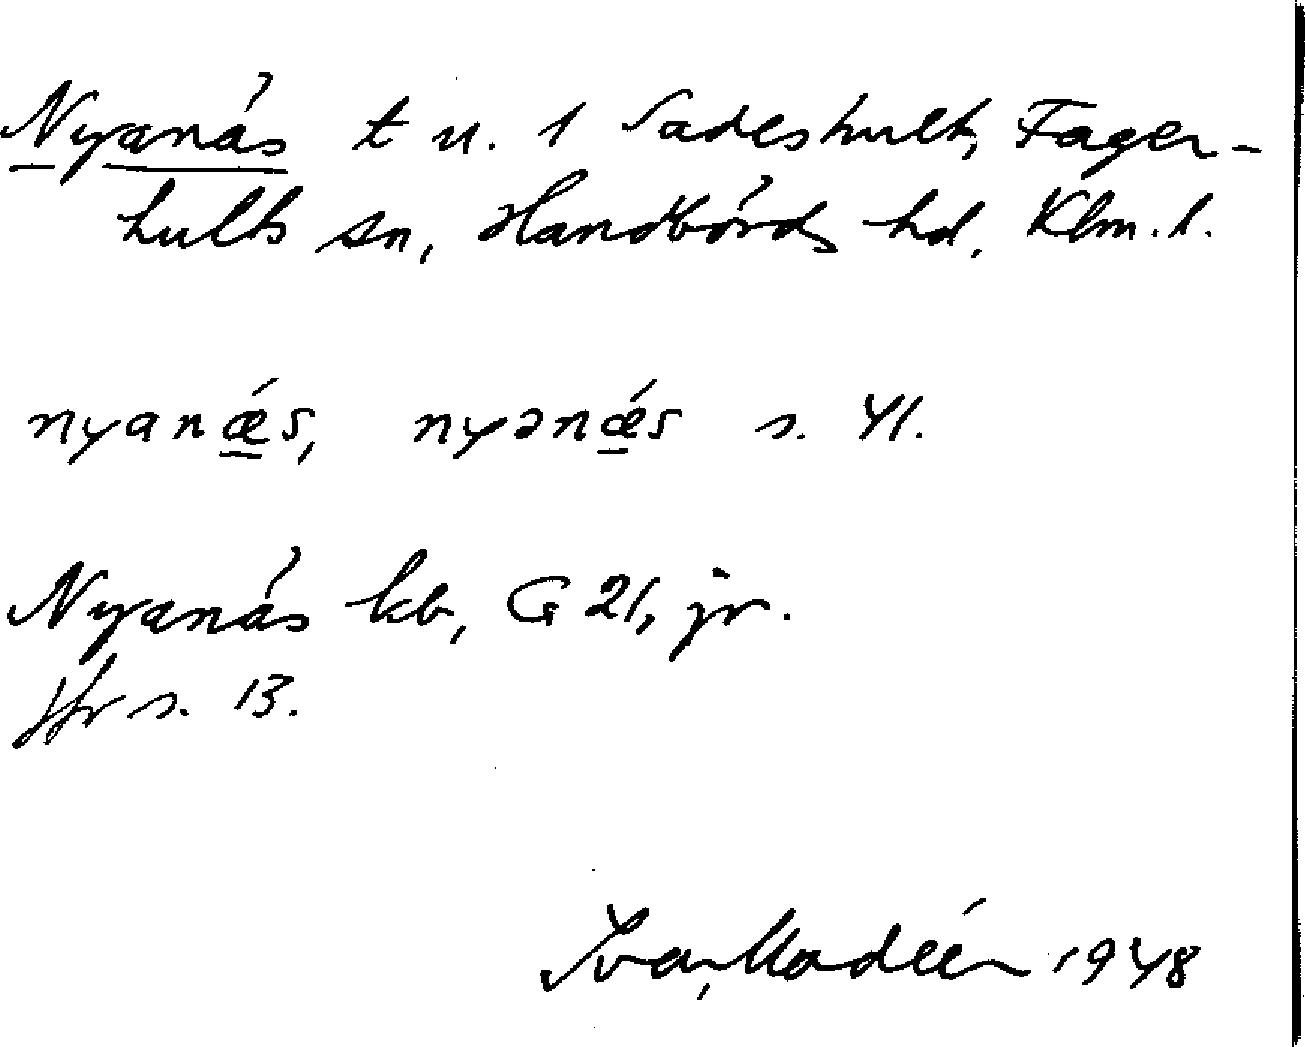 Nyanäs t u. 1 Sadeshult, Fager-
hults sn, Handbörds hd. Klm. l.
nyanǽs, nyənǽs s. 41.
Nyanäs kb, G 21, jr.
Jfr s. 13.
Ivar Modéer 1948